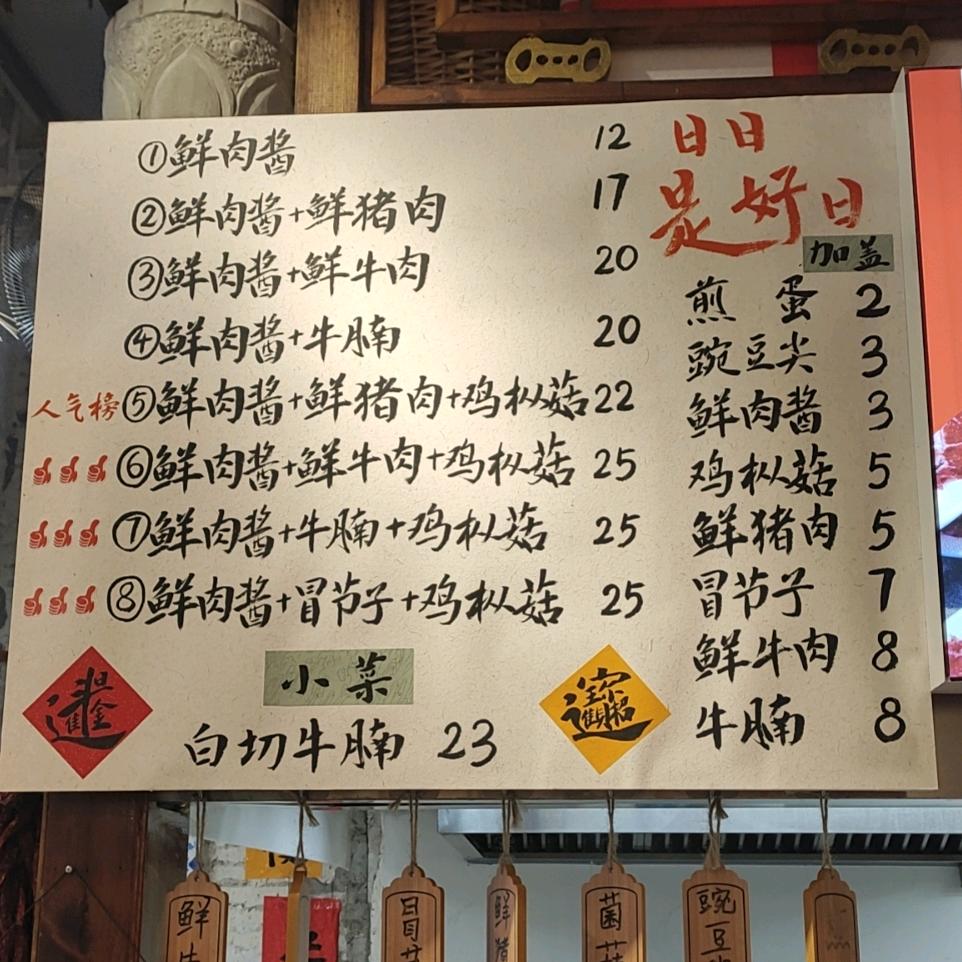 ①鲜肉酱 12
②鲜肉酱+鲜猪肉 17
③鲜肉酱+鲜牛肉 20
④鲜肉酱+牛腩 20
人气榜 ⑤鲜肉酱+鲜猪肉+鸡枞菇 22
⑥鲜肉酱+鲜牛肉+鸡枞菇 25
⑦鲜肉酱+牛腩+鸡枞菇 25
⑧鲜肉酱+冒节子+鸡枞菇 25
小菜
白切牛腩 23
日日
是好日
加盖
煎蛋 2
豌豆尖 3
鲜肉酱 3
鸡枞菇 5
鲜猪肉 5
冒节子 7
鲜牛肉 8
牛腩 8
招财进宝
鲜
冒节
鲜猪
菌菇
豌豆